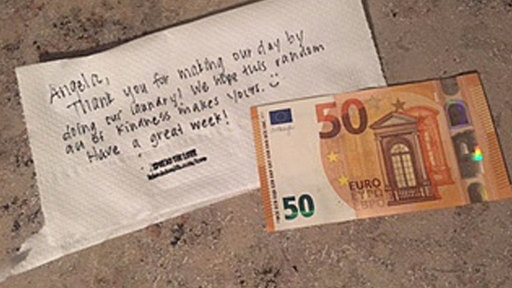 Angela,
Thank you for making our day by
doing our laundry! We hope this random
act of kindness makes yours. :)
Have a great week!
SPREAD THE LOVE
50
EURO
ΕΥΡΩ
ЕВРО
50